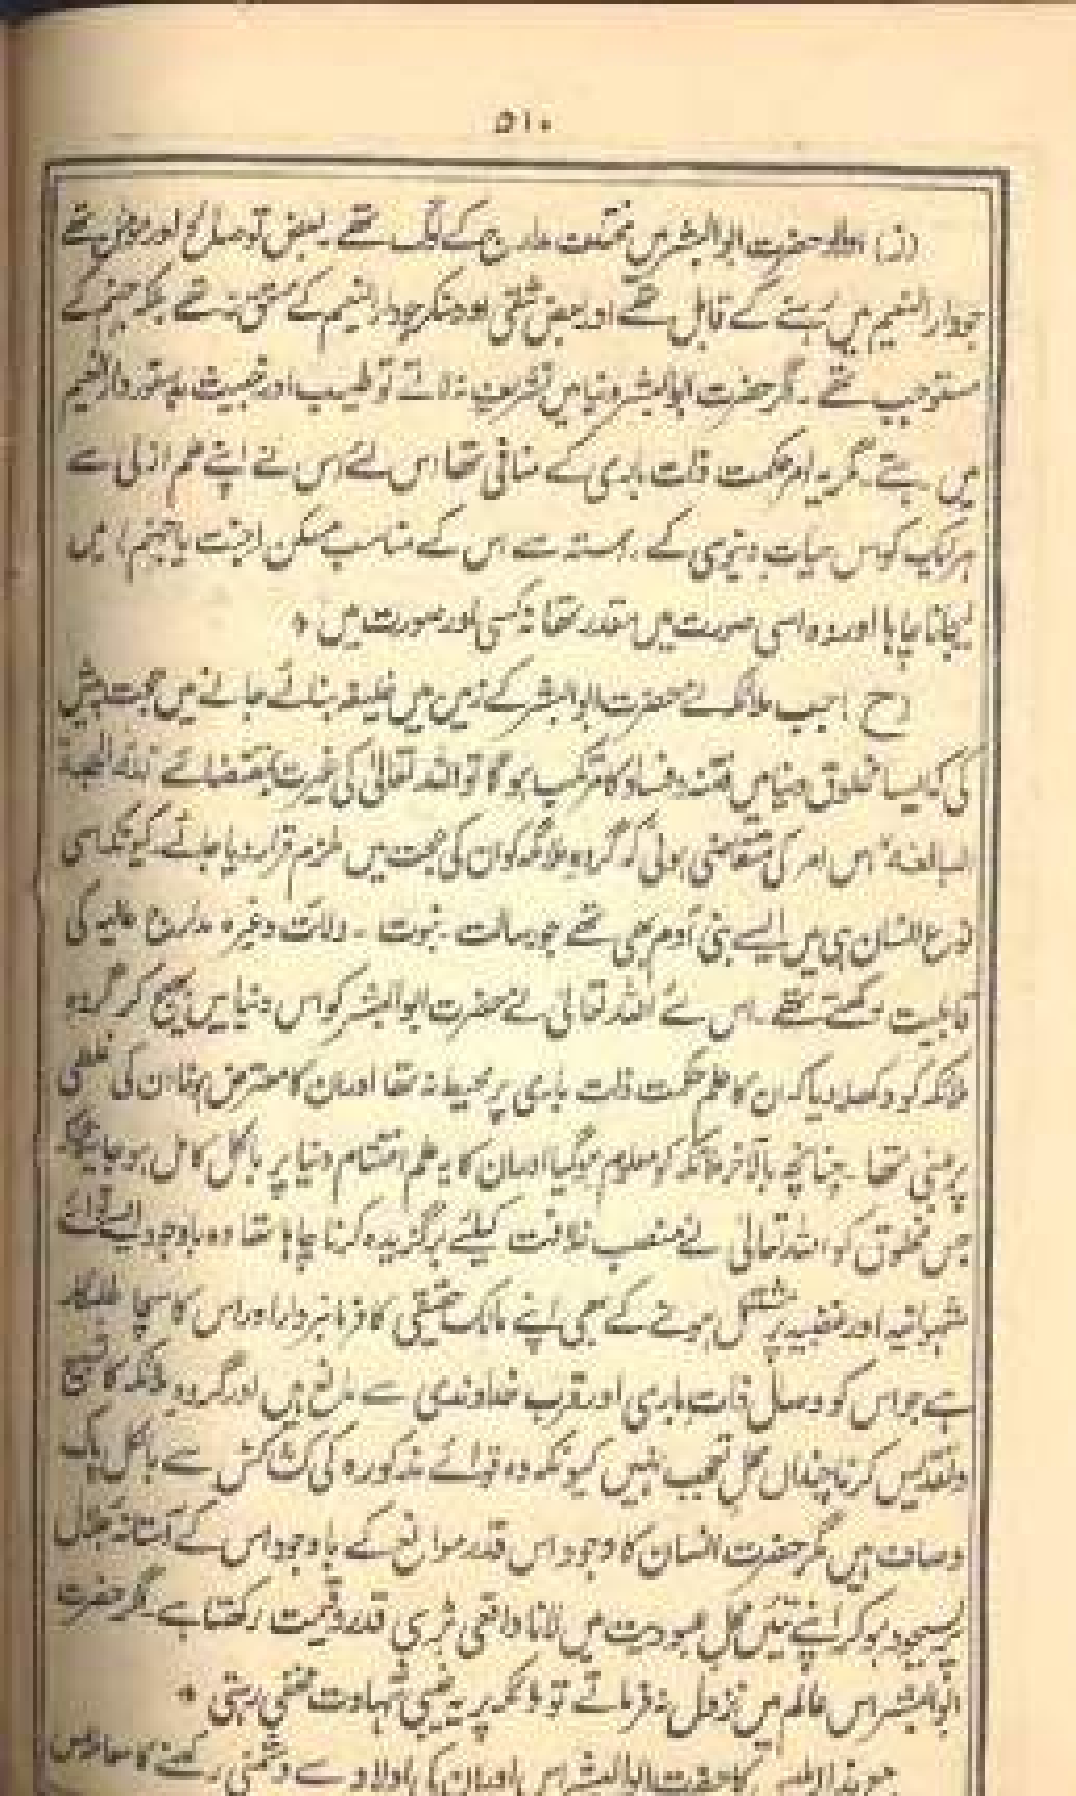 ۵۱۰
(ز) اولاد حضرت ابوالبشر میں مختلف مدارج کے لوگ تھے ۔ بعض تو صالح اور مومن تھے
جو دار النعیم میں رہنے کے قابل تھے اور بعض شقی اور منکر جو دار النعیم کے مستحق نہ تھے بلکہ جہنم کے
مستوجب تھے ۔ اگر حضرت ابوالبشر دنیا میں تشریف نہ لاتے تو طیب اور خبیث بدستور دار النعیم
میں رہتے ۔ مگر یہ امر حکمت ذات باری کے منافی تھا اس لئے اس نے اپنے علم ازلی سے
ہر ایک کو اس حیات دنیوی کے رستہ سے اس کے مناسب مسکن (جنت یا جہنم) میں
لیجانا چاہا اور وہ اسی صورت میں مقدر تھا نہ کسی اور صورت میں ٭
(ح) جب ملائکہ نے حضرت ابوالبشر کے زمین میں خلیفہ بنائے جانے میں حجت پیش
کی کہ ایسا مخلوق دنیا میں فتنہ و فساد کا مرتکب ہو گا تو اللہ تعالیٰ کی غیرت بمقتضائے فللہ الحجۃ
البالغہ" اس امر کی متقاضی ہوئی کہ گروہ ملائکہ کو ان کی حجت میں ملزم قرار دیا جائے ۔ کیونکہ اسی
نوع انسان ہی میں ایسے بنی آدم بھی تھے جو رسالت ۔ نبوت ۔ ولائت وغیرہ مدارج عالیہ کی
قابلیت رکھتے تھے ۔ اس لئے اللہ تعالیٰ نے حضرت ابوالبشر کو اس دنیا میں بھیج کر گروہ
ملائکہ کو دکھلا دیا کہ ان کا علم حکمت ذات باری پر محیط نہ تھا اور ان کا معترض ہونا ان کی غلطی
پر مبنی تھا ۔ چنانچہ بالآخر ملائکہ کو معلوم ہو گیا اور ان کا یہ علم اختتام دنیا پر بالکل کامل ہو جائیگا کہ
جس مخلوق کو اللہ تعالیٰ نے منصب خلافت کیلئے برگزیدہ کرنا چاہا تھا وہ باوجود ایسے قوائے
شہوانیہ اور غضبیہ پر مشتمل ہونے کے بھی اپنے مالک حقیقی کا فرمانبردار اور اس کا سچا طلبگار
ہے جو اس کو وصال ذات باری اور قرب خداوندی سے مانع ہیں اور گروہ ملائکہ کا تسبیح
و تقدیس کرنا چنداں محل تعجب نہیں کیونکہ وہ قوائے مذکورہ کی کشاکش سے بالکل پاک
و صاف ہیں مگر حضرت انسان کا وجود اس قدر موانع کے باوجود اس کے آستانہ جلال
پر بسجود ہو کر اپنے تئیں محل عبودیت میں لانا واقعی بڑی قدر و قیمت رکھتا ہے ۔ اگر حضرت
ابوالبشر اس عالم میں نزول نہ فرماتے تو ملائکہ پر یہ غیبی شہادت مخفی رہتی ٭
کا حضرت ابوالبشر اس اور ان کی اولاد سے دشمنی رکھنے کا معاملہ اس